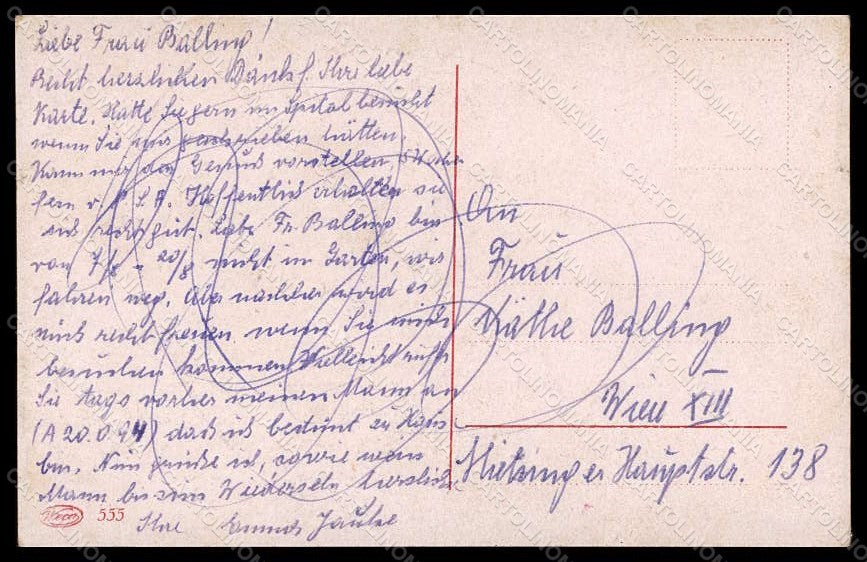 Liebe Frau Balling!
Recht herzlichen Dank f. Ihre liebe
Karte. Hätte Sie gern im Spital besucht
wenn Sie mir geschrieben hätten.
Kann mir den Genuß vorstellen
fern v. Hoffentlich erhalten sie
sich recht gut. Liebe Fr. Balling bin
von 7/8 - 20/8 nicht im Garten, wir
fahren weg. Aber nachher wird es
mich recht freuen wenn Sie mich
besuchen kommen. Vielleicht rufen
Sie tags vorher meinen Mann an
(A 20.0.94) daß ich bestimmt zu Haus
bin. Nun grüße ich, sowie mein
Mann bis zum Wiedersehn herzlich
Ihre
An
Frau
Käthe Balling
Wien XIII
Hietzinger Hauptstr. 138
555
CARTOLINOMANIA